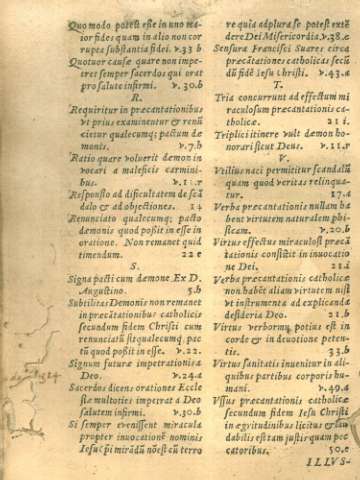 Quomodo potest esse in uno ma
ior fides quam in alio non cor
rupta substantia fidei. v.33 b
Quotuor causæ quare non impe
tret semper sacerdos qui orat
pro salute infirmi. v. 30.b
R.
Requiritur in præcantationibus
vt prius examinentur & renũ
cietur qualecumq; pactum dæ
monis. v.7.b
Ratio quare voluerit dæmon in
vocari a maleficis carmini-
bus.
Responsio ad dificultatem de scã
dalo & ad obiectiones. 14
Renunciato qualecumq; pacto
dæmonis quod possit in esse in
oratione. Non remanet quid
timendum. 22 e
S.
Signa pacti cum dæmone Ex D.
Augustino. 5.b
Subtilitas Demonis non remanet
in præcãtationibus catholicis
secundum fidem Christi cum
renunciatũ sit qualecumq; pac
tũ quod possit in esse. v.22.
Signum futuræ impetrationis a
Deo. v.24.a
Sacerdos dicens orationes Eccle
siæ multoties impetrat a Deo
salutem infirmi. v.30.b
Si semper evenissent miracula
propter invocationẽ nominis
Iesu
re quia adplura se potest extẽ
dere Dei Misericordia. v.38.e
Sensura Francisci Suares circa
precãtationes catholicas secũ
dũ fidẽ Iesu Christi. v.43.a
T.
Tria concurrunt ad effectum mi
raculosum præcantationis ca-
tholicæ. 21 i.
Triplici itinere vult dæmon ho-
norari sicut Deus. v.11.r
V.
Vtilius naci permititur scandalũ
quam quod veritas relinqua-
tur. 17.d
Verba præcantationis nullam ha
bent virtutem naturalem phi-
sicam. v.20.b
Virtus effectus miraculosi præcã
tationis consistit in invocatio
ne Dei. 21.i
Verba præcantationis catholicæ
non habẽt aliam virtutem nisi
vt instrumenta ad explicandã
desideria Deo. 21.b
Virtus verborum, potius est in
corde & in deuotione peten-
tis. 33.b
Virtus sanitatis invenitur in ali-
quibus partibus corporis hu-
mani. v.49.a
Vsus præcantationis catholicæ
secundum fidem Iesu Christi
in ægvitudinibus licitus & lau
dabilis est tam justis quam pec
catoribus. 50.e
ILLVS-